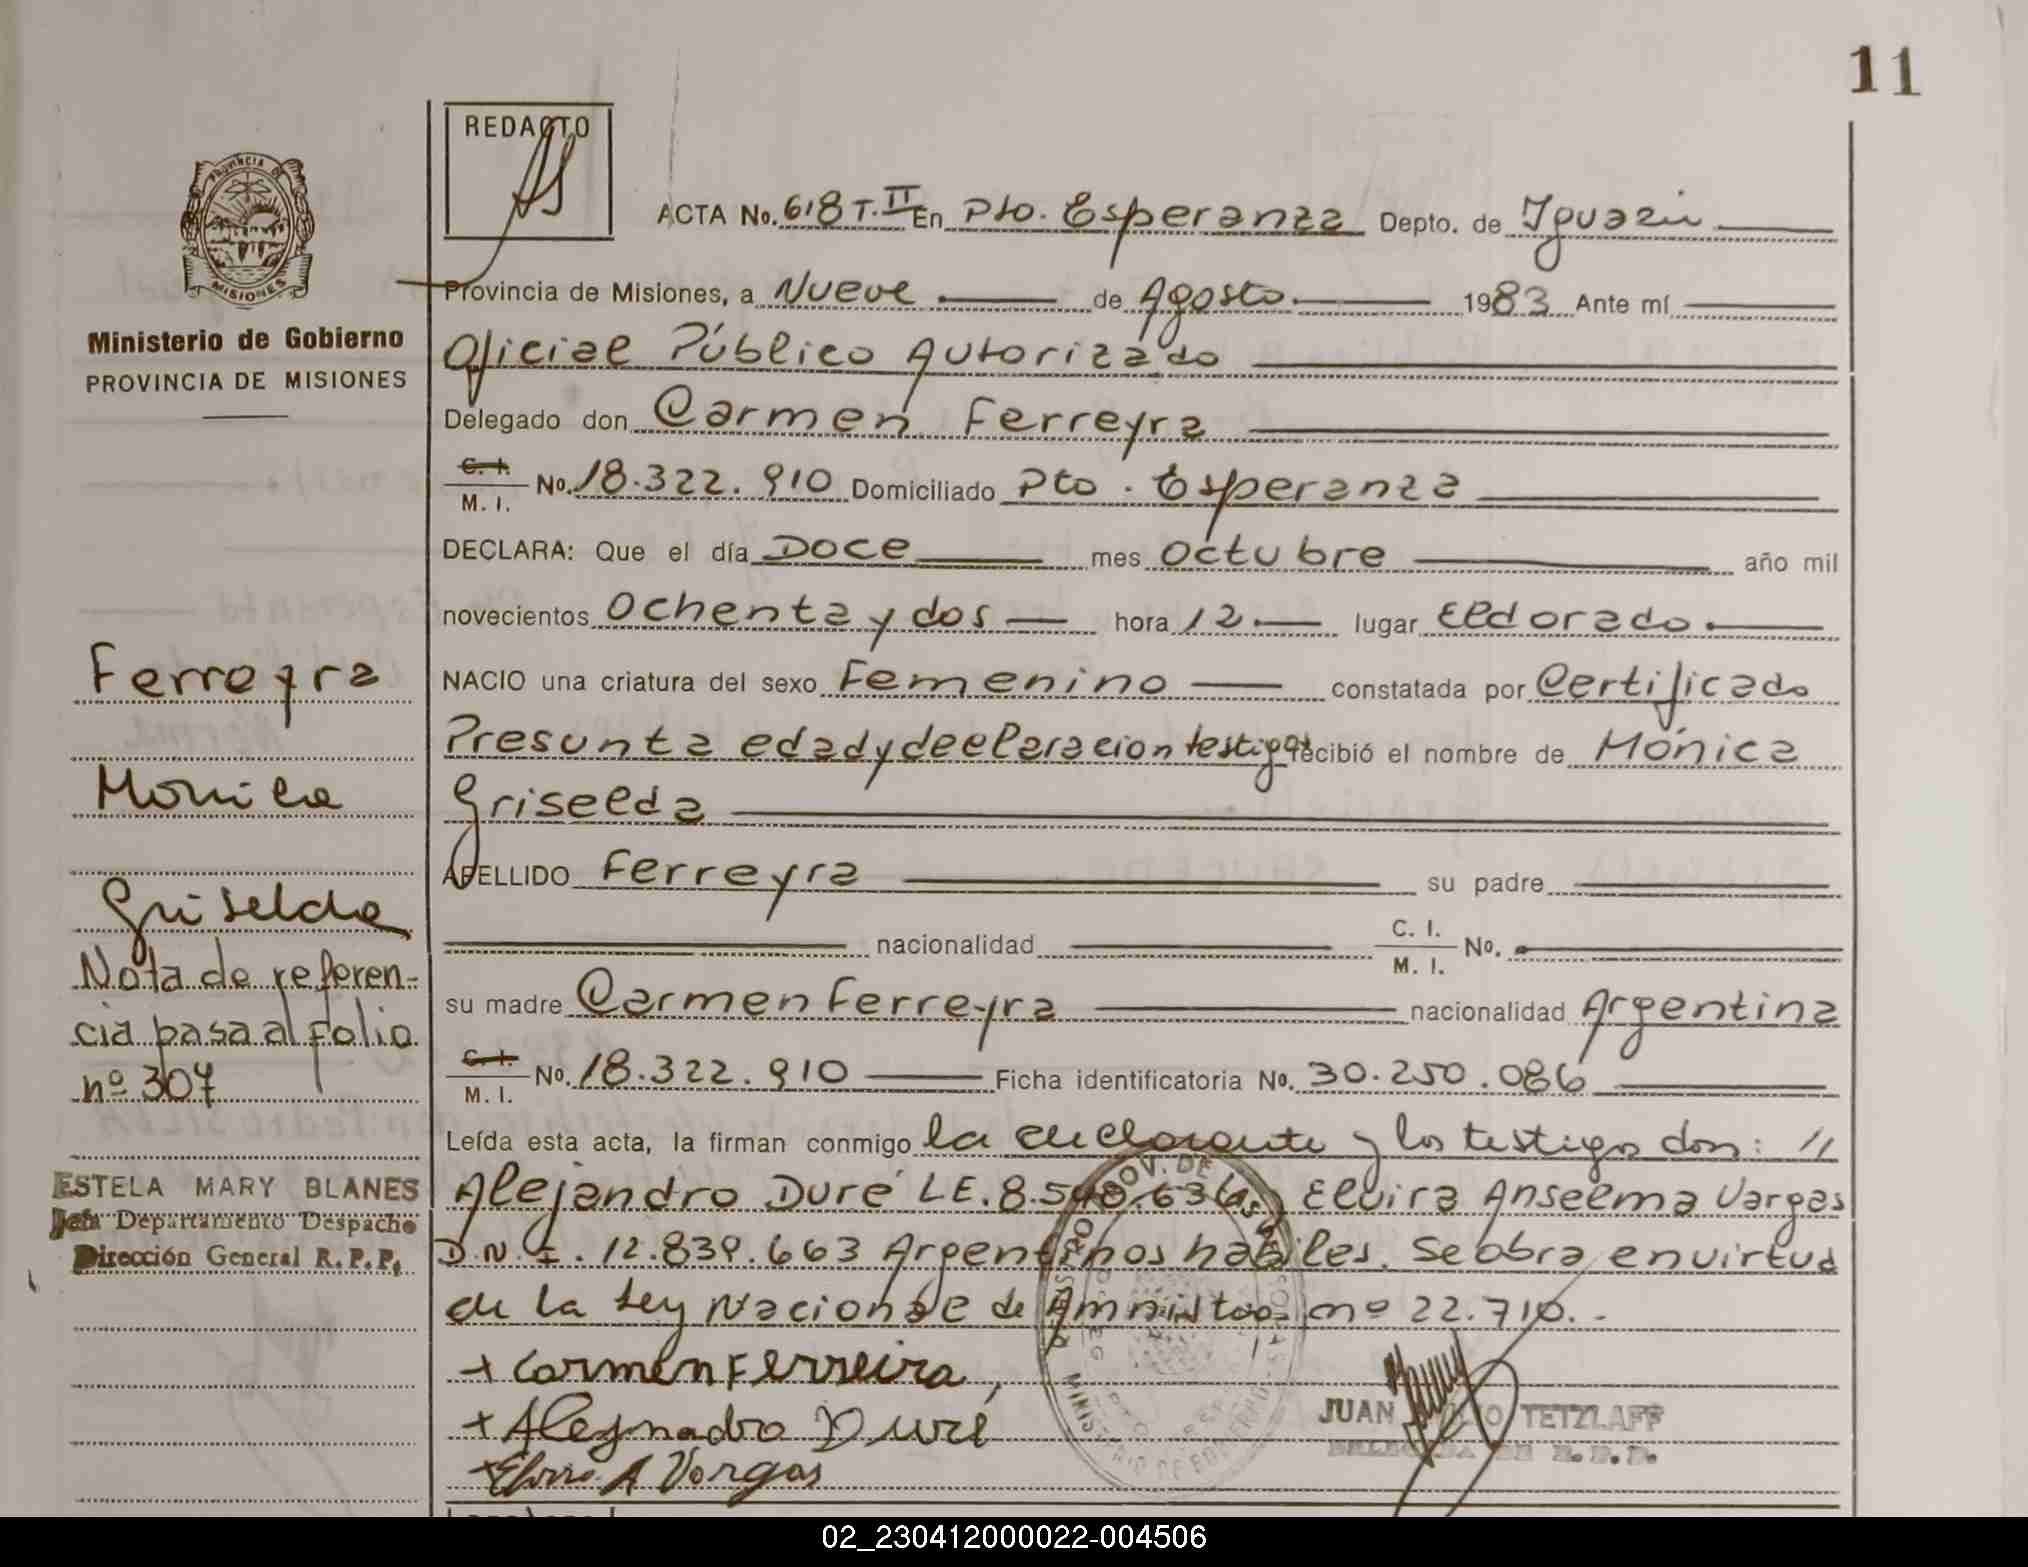 11
REDACTO
PROVINCIA DE
MISIONES
Ministerio de Gobierno
PROVINCIA DE MISIONES
ACTA No. 618 T. II En Pto. Esperanza Depto. de Iguazú
Provincia de Misiones, a Nueve de Agosto 1983 Ante mí
Oficial Público Autorizado
Delegado don Carmen Ferreyra
C. I. / M. I. No. 18.322.910 Domiciliado Pto. Esperanza
DECLARA: Que el día Doce mes octubre año mil
novecientos Ochenta y dos hora 12 lugar Eldorado
NACIO una criatura del sexo Femenino constatada por Certificado
Presunta edad y declaracion testigos recibió el nombre de Mónica
Griselda
APELLIDO Ferreyra su padre
nacionalidad C. I. / M. I. No.
su madre Carmen Ferreyra nacionalidad Argentina
C. I. / M. I. No. 18.322.910 Ficha identificatoria No. 30.250.086
Leída esta acta, la firman conmigo la declarante y los testigos don: //
Alejandro Duré L.E. 8.548.636 y Elvira Anselma Vargas
D.N.I. 12.839.663 Argentinos habiles. Se obra en virtud
de la Ley Nacional de Amnistia nº 22.710.-
+ Carmen Ferreira,
+ Alejnadro Duré
+ Elvira A Vargas
JUAN TETZLAFF
Ferreyra
Monica
Griselda
Nota de referen-
cia pasa al folio
nº 307
ESTELA MARY BLANES
Jefa Departamento Despacho
Dirección General R.P.P.
02_230412000022-004506